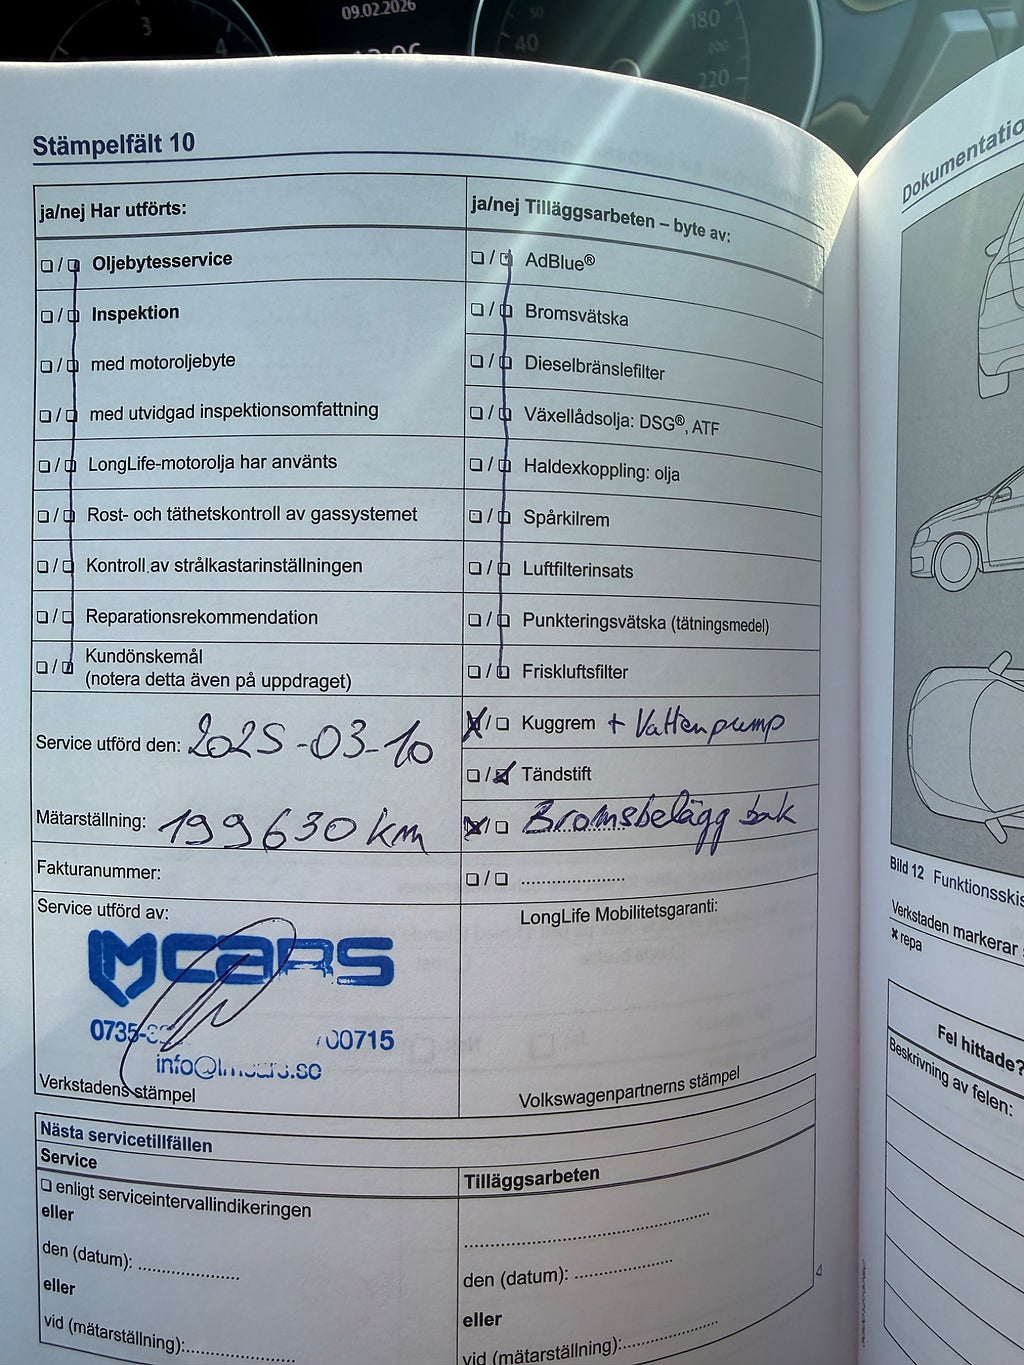 3
4
09.02.2026
50
40
180
200
220
Stämpelfält 10
ja/nej Har utförts:
Oljebytesservice
Inspektion
med motoroljebyte
med utvidgad inspektionsomfattning
LongLife-motorolja har använts
Rost- och täthetskontroll av gassystemet
Kontroll av strålkastarinställningen
Reparationsrekommendation
Kundönskemål
(notera detta även på uppdraget)
Service utförd den: 2025-03-10
Mätarställning: 199630 km
Fakturanummer:
Service utförd av:
MCARS
0735- 00715
Verkstadens stämpel
ja/nej Tilläggsarbeten – byte av:
AdBlue®
Bromsvätska
Dieselbränslefilter
Växellådsolja: DSG®, ATF
Haldexkoppling: olja
Spårkilrem
Luftfilterinsats
Punkteringsvätska (tätningsmedel)
Friskluftsfilter
Kuggrem + Vattenpump
Tändstift
Bromsbelägg bak
LongLife Mobilitetsgaranti:
Volkswagenpartnerns stämpel
Nästa servicetillfällen
Service
enligt serviceintervallindikeringen
eller
den (datum):
eller
vid (mätarställning):
Tilläggsarbeten
den (datum):
eller
vid (mätarställning):
Bild 12 Funktionsskis
Verkstaden markerar
repa
Fel hittade?
Beskrivning av felen: